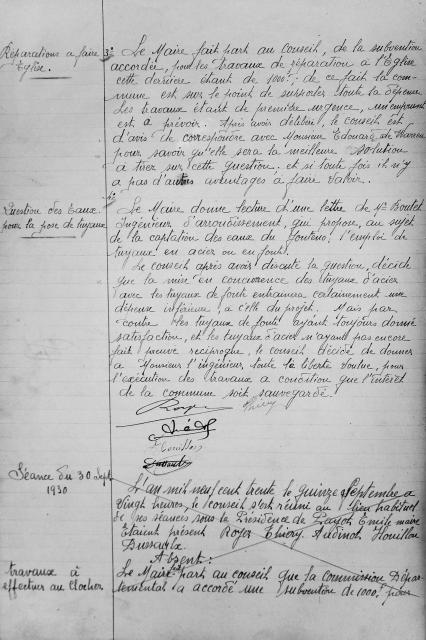 Réparations a faire
Eglise.
3° Le Maire fait part au Conseil, de la subvention
accordée, pour les travaux de réparation à l'Eglise
cette derniere étant de 1000f. de ce fait la com-
mune est sur le point de supporter toute la dépense
Les travaux étant de première urgence, un emprunt
est a prévoir. Après avoir délibéré, le conseil est
d'avis de correspondre avec Monsieur Edouard de Warren
pour savoir qu'elle sera la meilleure solution
a tirer sur cette question, et si toute fois il n'y
a pas d'autres avantages à faire valoir.
Question des Eaux
pour la pose de tuyaux
4° Le Maire donne lecture d'une lettre de Mr Boutet
Ingénieur d'arrondissement, qui propose, au sujet
de la captation des eaux du l'emploi de
tuyaux en acier ou en fonte.
Le conseil après avoir discuté la question, décide
que la mise en concurrence des tuyaux d'acier
avec les tuyaux de fonte entrainera certainement une
dépense inférieure a celle du projet. Mais par
contre les tuyaux de fonte ayant toujours donné
satisfaction, et les tuyaux d'acier n'ayant pas encore
fait preuve reciproque, le conseil décide de donner
a Monsieur l'ingénieur, toute la liberté voulue, pour
l'exécution des travaux a condition que l'intérêt
de la commune soit sauvegardé.
Séance du 30 Sept
1930
L'an mil neuf cent trente le quinze Septembre a
vingt heures, le conseil s'est réuni au lieu habituel
de ses séances sous la Présidence de Emile maire
Etaient présent Roger Thiery Audinot Houillon
Dussaulx.
Absent:
travaux à
effectuer au Clocher
Le Maire fait part au conseil que la Commission Dépar-
tementale a accordé une subvention de 1000f pour